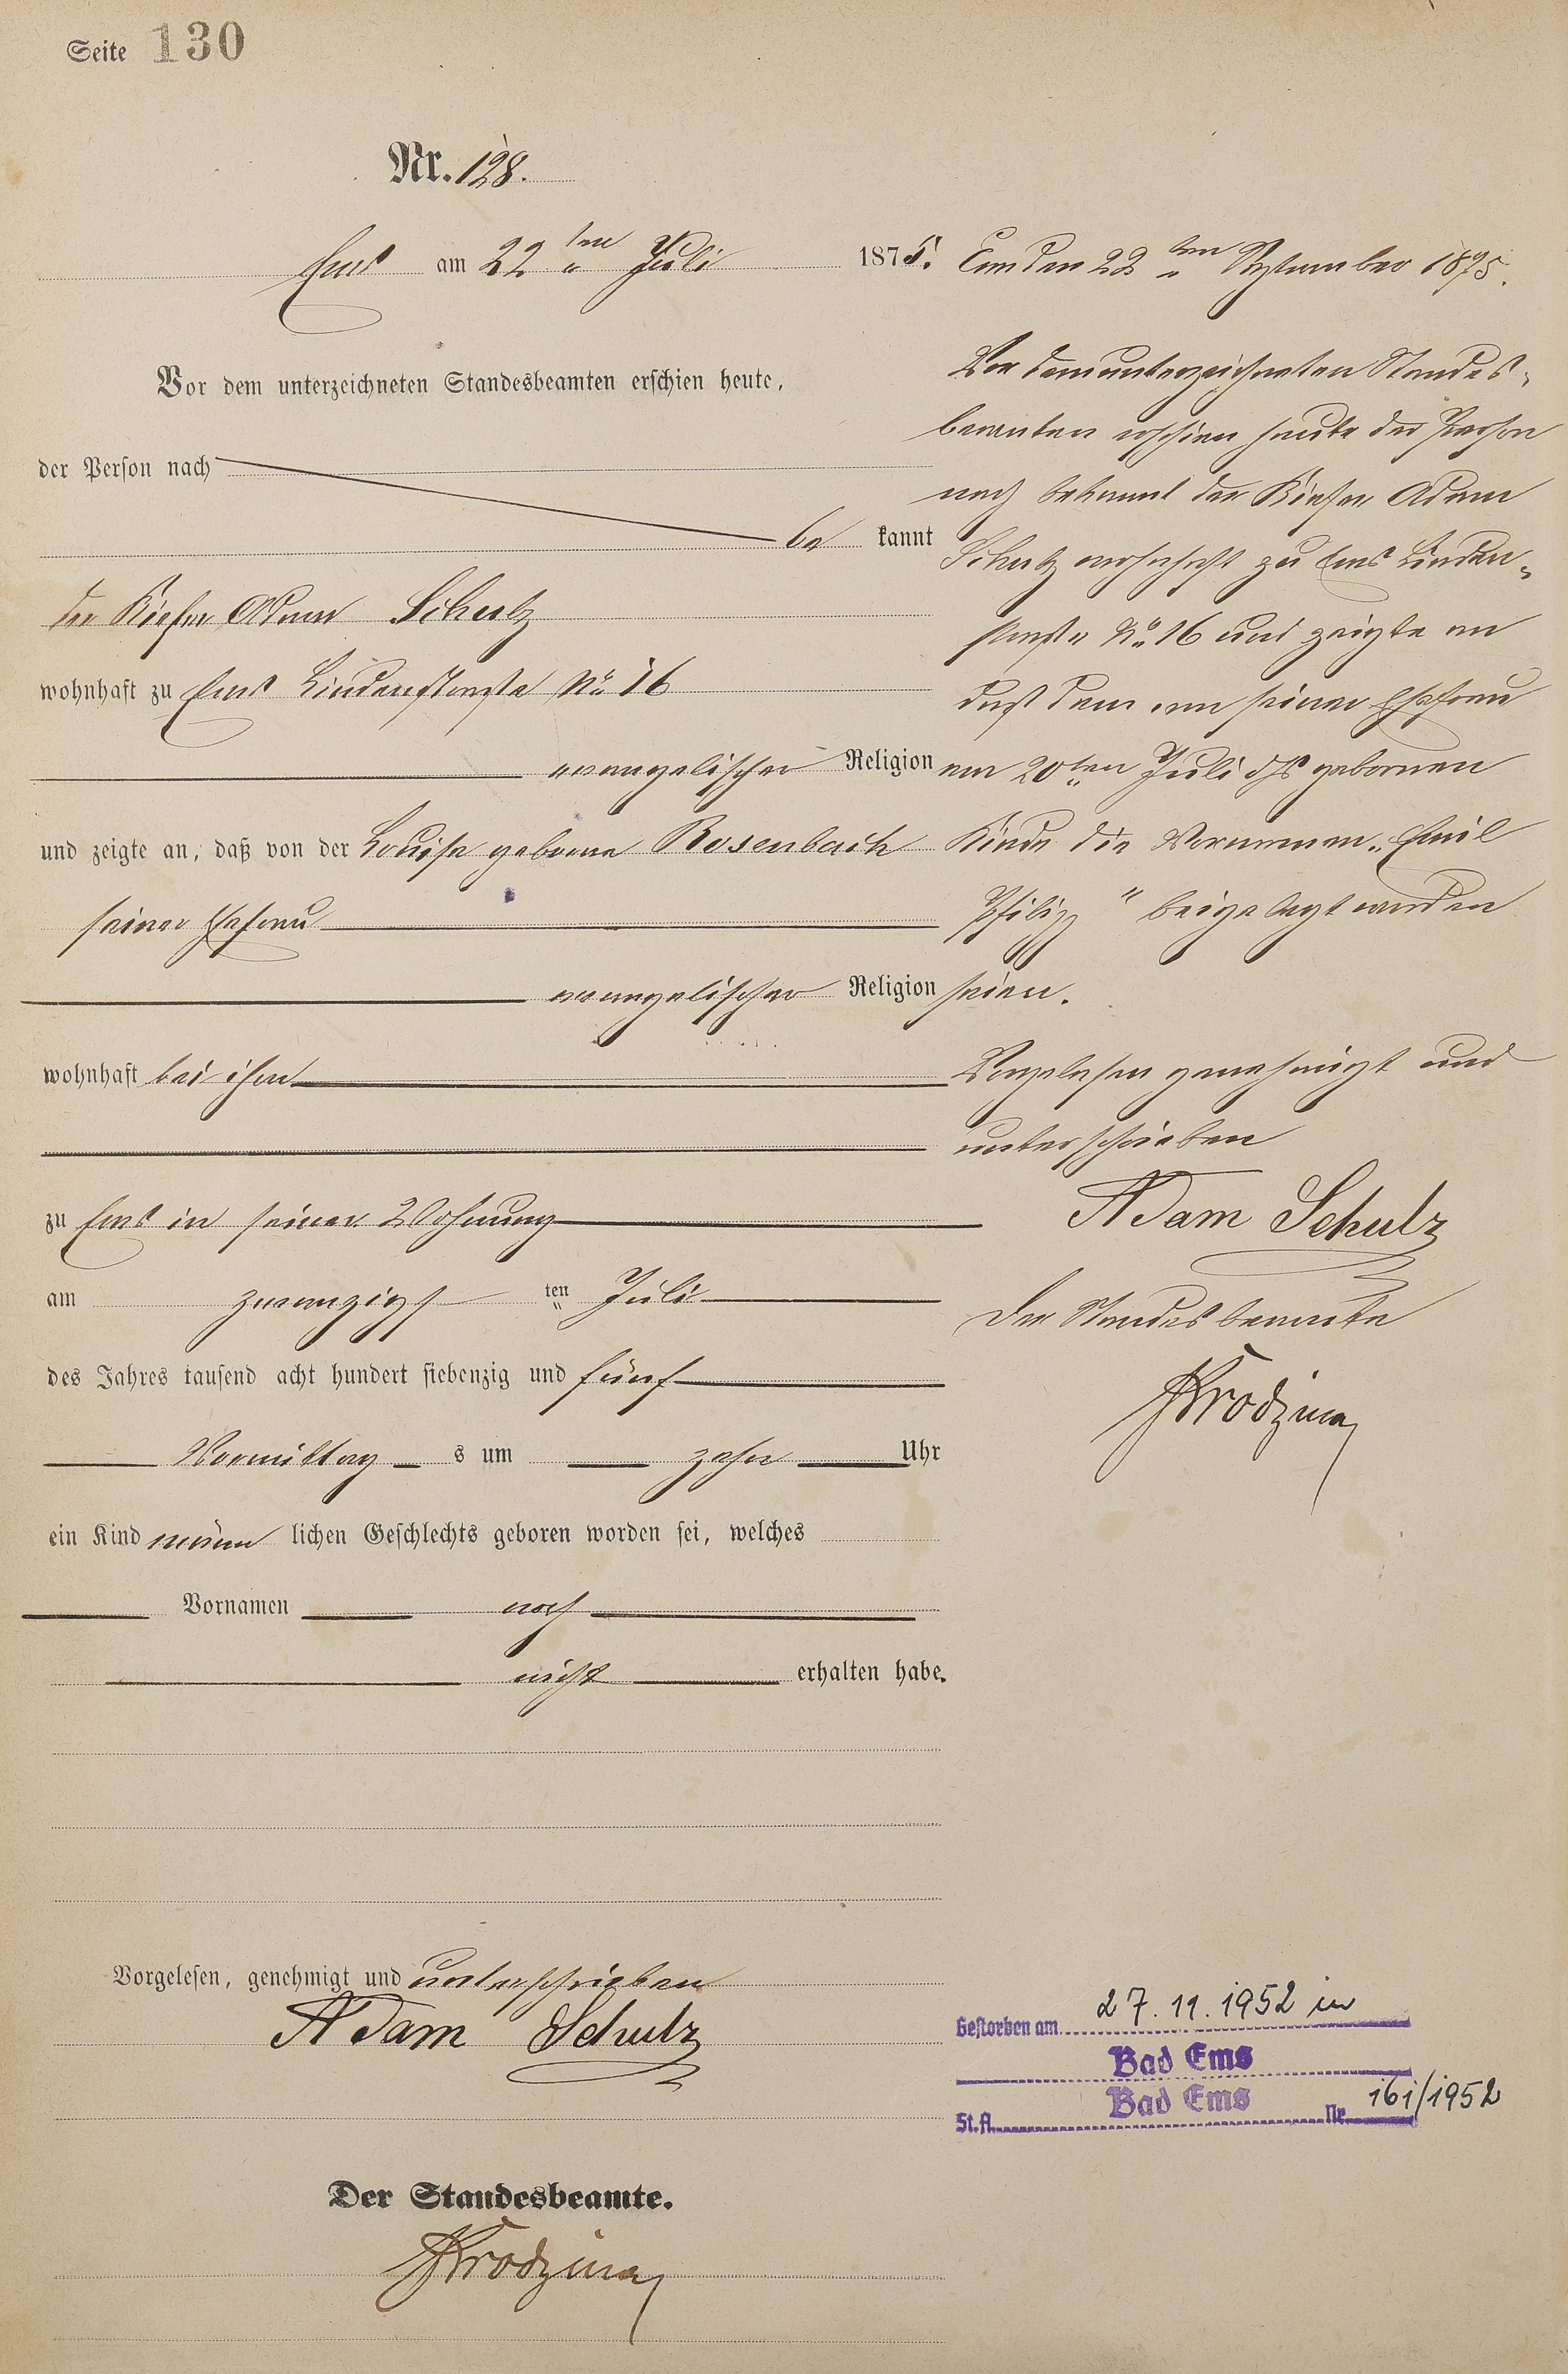 Seite 130
Nr. 128.
Ems am 22ten Juli 1875.
Vor dem unterzeichneten Standesbeamten erschien heute,
der Person nach
be kannt
der Kiefer Adam Schulz
wohnhaft zu Ems Lindenstraße No 16
evangelischer Religion
und zeigte an, daß von der Louise geborne Rosenbach
seiner Ehefrau
evangelischer Religion
wohnhaft bei ihm
zu Ems in seiner Wohnung
am zwanzigsten Juli
des Jahres tausend acht hundert siebenzig und fünf
Vormittag s um zehn Uhr
ein Kind männ lichen Geschlechts geboren worden sei, welches
Vornamen noch
nicht erhalten habe.
Vorgelesen, genehmigt und unterschrieben
Adam Schulz
Der Standesbeamte.
Ems den 22ten September 1875.
Vor dem unterzeichneten Standes-
beamten erschien heute der Person
nach bekannt der Kiefer Adam
Schulz wohnhaft zu Ems Linden-
straße No 16 und zeigte an
daß dem von seiner Ehefrau
am 20ten Juli ds Js gebornen
Kinde die Vornamen „Emil
Philipp" beigelegt worden
seien.
Vorgelesen genehmigt und
unterschrieben
Adam Schulz
Der Standesbeamte
Gestorben am 27.11.1952 in
Bad Ems
St.A. Bad Ems Nr. 161/1952